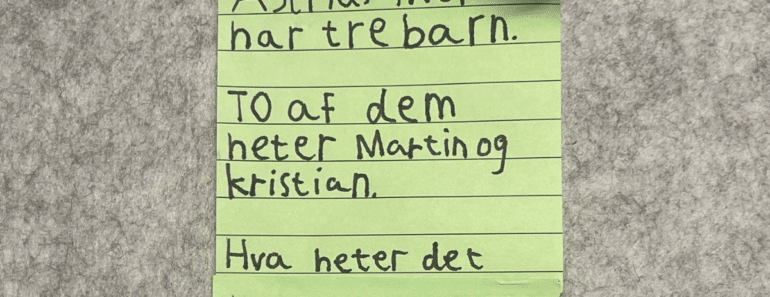 har tre barn.
TO af dem
heter Martin og
kristian.
Hva heter det